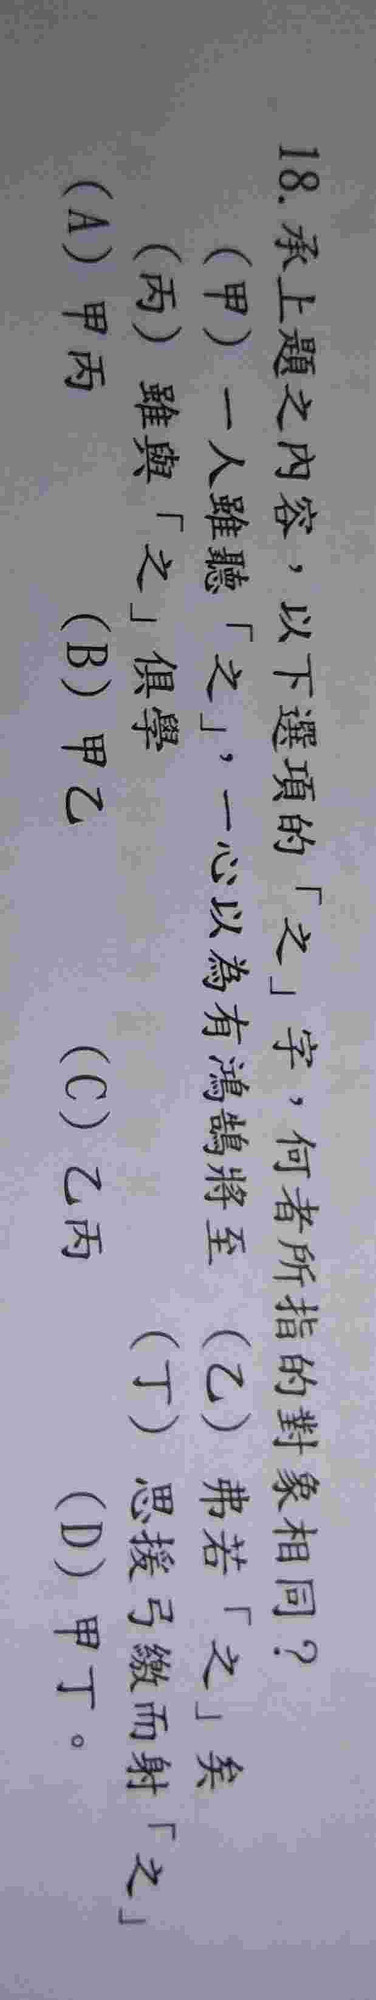 18. 承上題之內容，以下選項的「之」字，何者所指的對象相同？
（甲）一人雖聽「之」，一心以為有鴻鵠將至 （乙）弗若「之」矣
（丙）雖與「之」俱學 （丁）思援弓繳而射「之」
（A）甲丙 （B）甲乙 （C）乙丙 （D）甲丁。